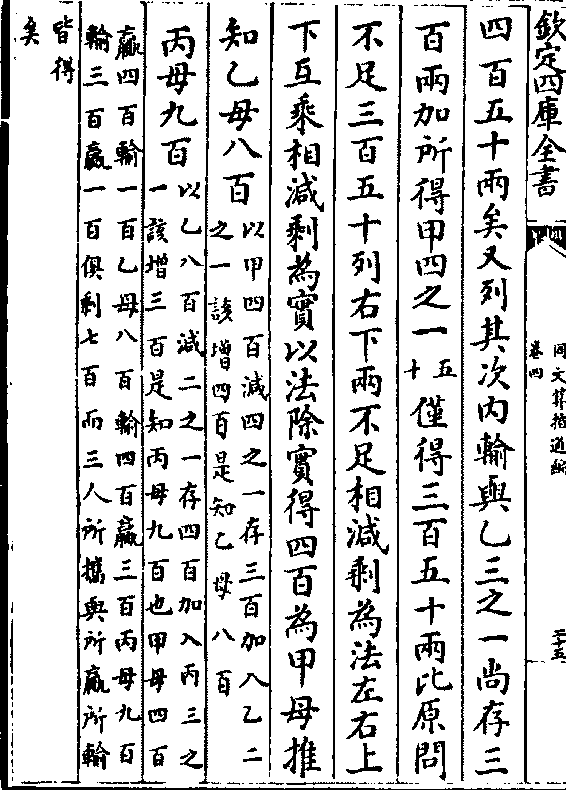 欽定四庫全書
同文算指通編
卷四
四百五十兩矣又列其次丙輸與乙三之一尚存三
百兩加所得甲四之一五十僅得三百五十兩比原問
不足三百五十列右下兩不足相減剩為法左右上
下互乘相減剩為實以法除實得四百為甲母推
知乙母八百以甲四百減四之一存三百加入乙二
之一該增四百是知乙母八百
丙母九百以乙八百減二之一存四百加入丙三之
一該增三百是知丙母九百也甲母四百
贏四百輸一百乙母八百輸四百贏三百丙母九百
輸三百贏一百俱剩七百而三人所攜與所贏所輸
皆得
矣